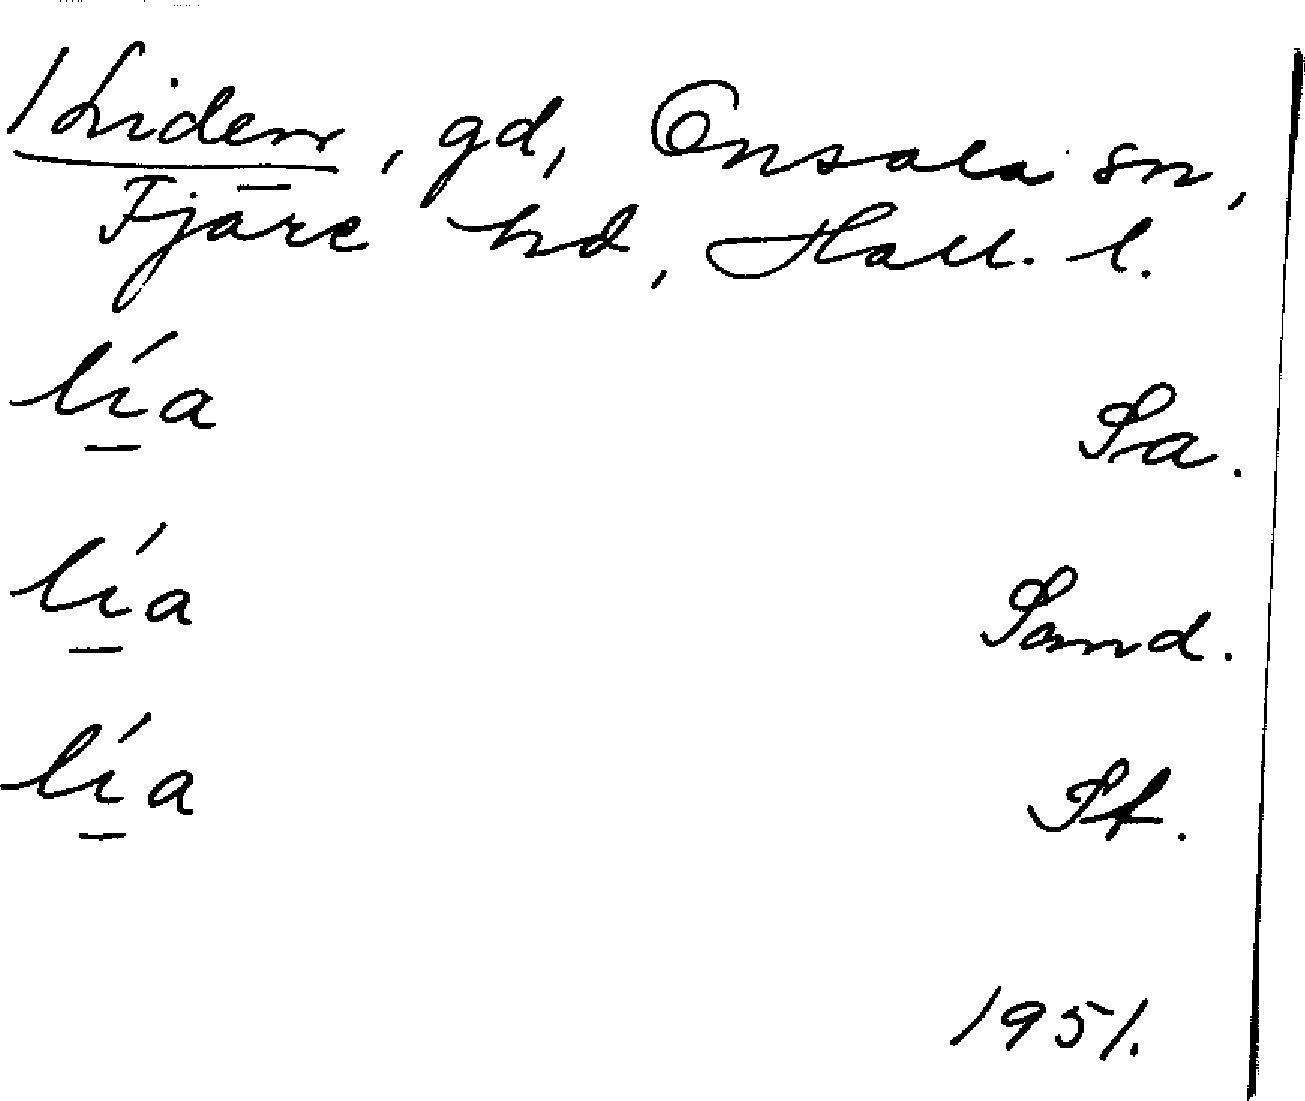 1 Liden, gd, Onsala sn,
Fjäre hd, Hall. l.
lía Sa.
lía Sand.
lía Sf.
1951.